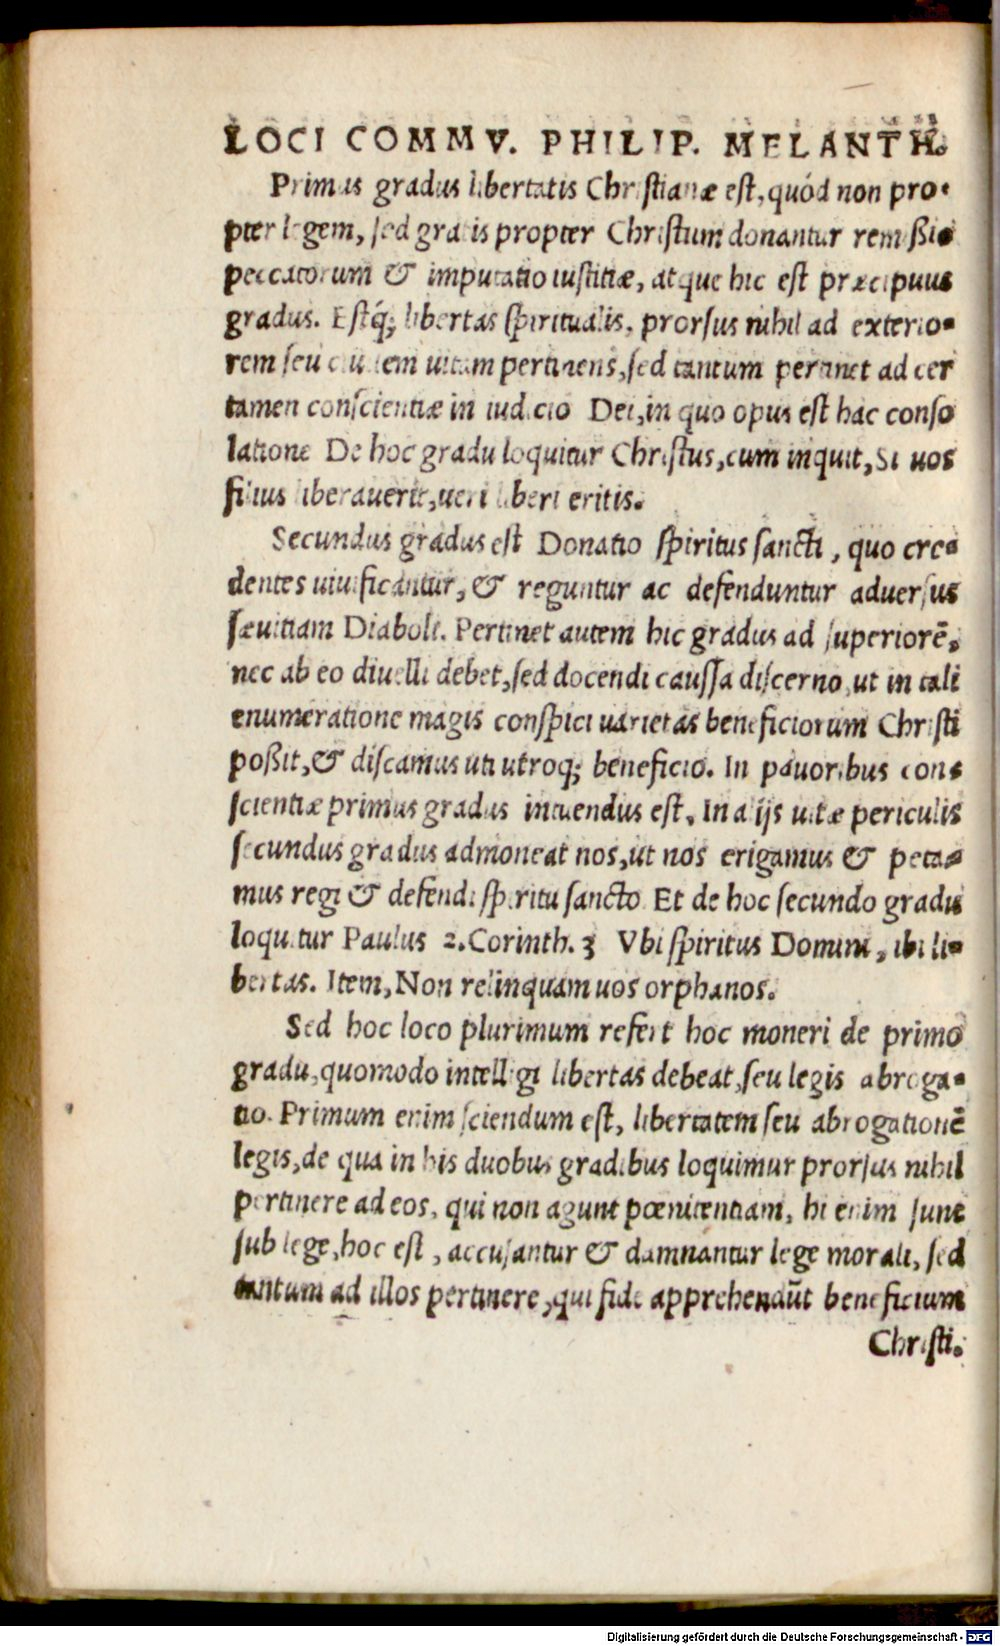 LOCI COMMV. PHILIP. MELANTH.
Primus gradus libertatis Christianæ est, quód non pro-
pter legem, sed gratis propter Christum donantur remißio
peccatorum & imputatio iustitiæ, atque hic est præcipuus
gradus. Estq́; libertas spiritualis, prorsus nihil ad exterio-
rem seu ciuilem uitam pertinens, sed tantum pertinet ad cer
tamen conscientiæ in iudicio Dei, in quo opus est hac conso
latione De hoc gradu loquitur Christus, cum inquit, Si uos
filius liberauerit, ueri liberi eritis.
Secundus gradus est Donatio spiritus sancti, quo cre-
dentes uiuificantur, & reguntur ac defenduntur aduersus
sæuitiam Diaboli. Pertinet autem hic gradus ad superiorẽ,
nec ab eo diuelli debet, sed docendi caussa discerno, ut in tali
enumeratione magis conspici uarietas beneficiorum Christi
poßit, & discamus uti utroq; beneficio. In pauoribus con-
scientiæ primus gradus intuendus est. In alijs uitæ periculis
secundus gradus admoneat nos, ut nos erigamus & peta-
mus regi & defendi spiritu sancto Et de hoc secundo gradu
loquitur Paulus 2. Corinth. 3 Vbi spiritus Domini, ibi li-
bertas. Item, Non relinquam uos orphanos.
Sed hoc loco plurimum refert hoc moneri de primo
gradu, quomodo intelligi libertas debeat, seu legis abroga-
tio. Primum enim sciendum est, libertatem seu abrogationẽ
legis, de qua in his duobus gradibus loquimur prorsus nihil
pertinere ad eos, qui non agunt pœnitentiam, hi enim sunt
sub lege, hoc est, accusantur & damnantur lege morali, sed
tantum ad illos pertinere, qui fide apprehendũt beneficium
Christi.
Digitalisierung gefördert durch die Deutsche Forschungsgemeinschaft - DFG